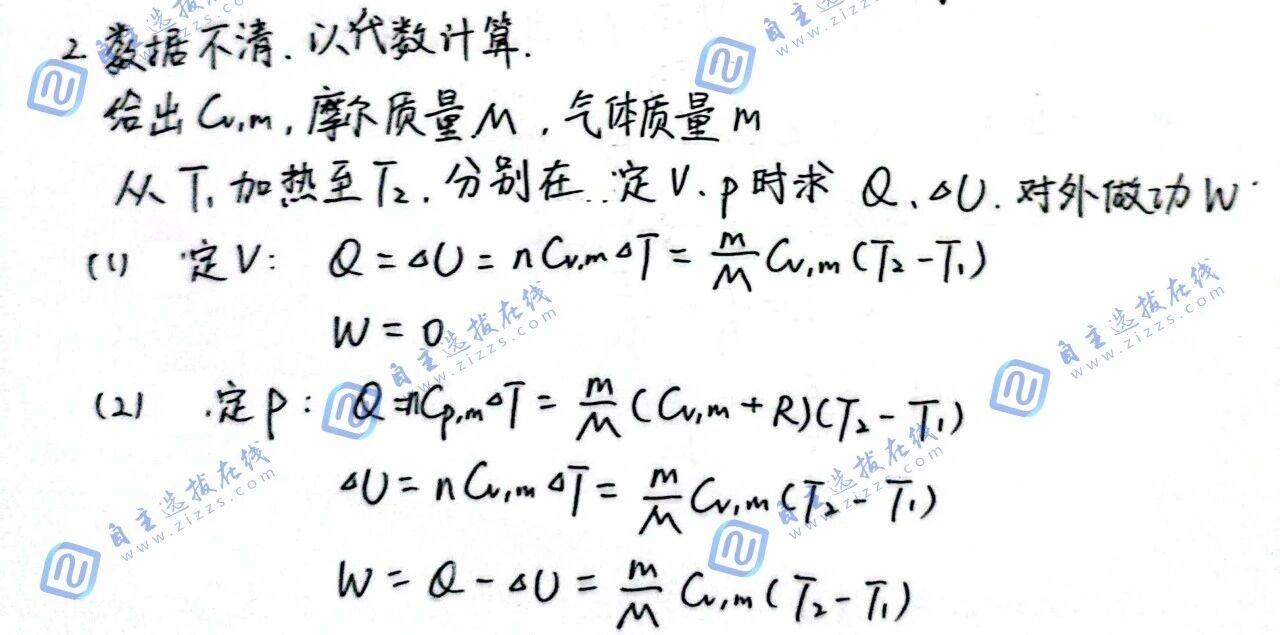 2. 数据不清. 以代数计算.
给出 Cv,m, 摩尔质量 M, 气体质量 m
从 T₁ 加热至 T₂. 分别在 定 V、p 时求 Q、ΔU. 对外做功 W
(1) 定V: Q = ΔU = nCv,mΔT = m/M Cv,m (T₂ - T₁)
W = 0
(2) 定 P: Q = nCp,mΔT = m/M (Cv,m + R)(T₂ - T₁)
ΔU = nCv,mΔT = m/M Cv,m (T₂ - T₁)
W = Q - ΔU = m/M Cv,m (T₂ - T₁)
自主选拔在线
www.zizzs.com
自主选拔在线
www.zizzs.com
自主选拔在线
www.zizzs.com
自主选拔在线
www.zizzs.com
自主选拔在线
www.zizzs.com
自主选拔在线
www.zizzs.com